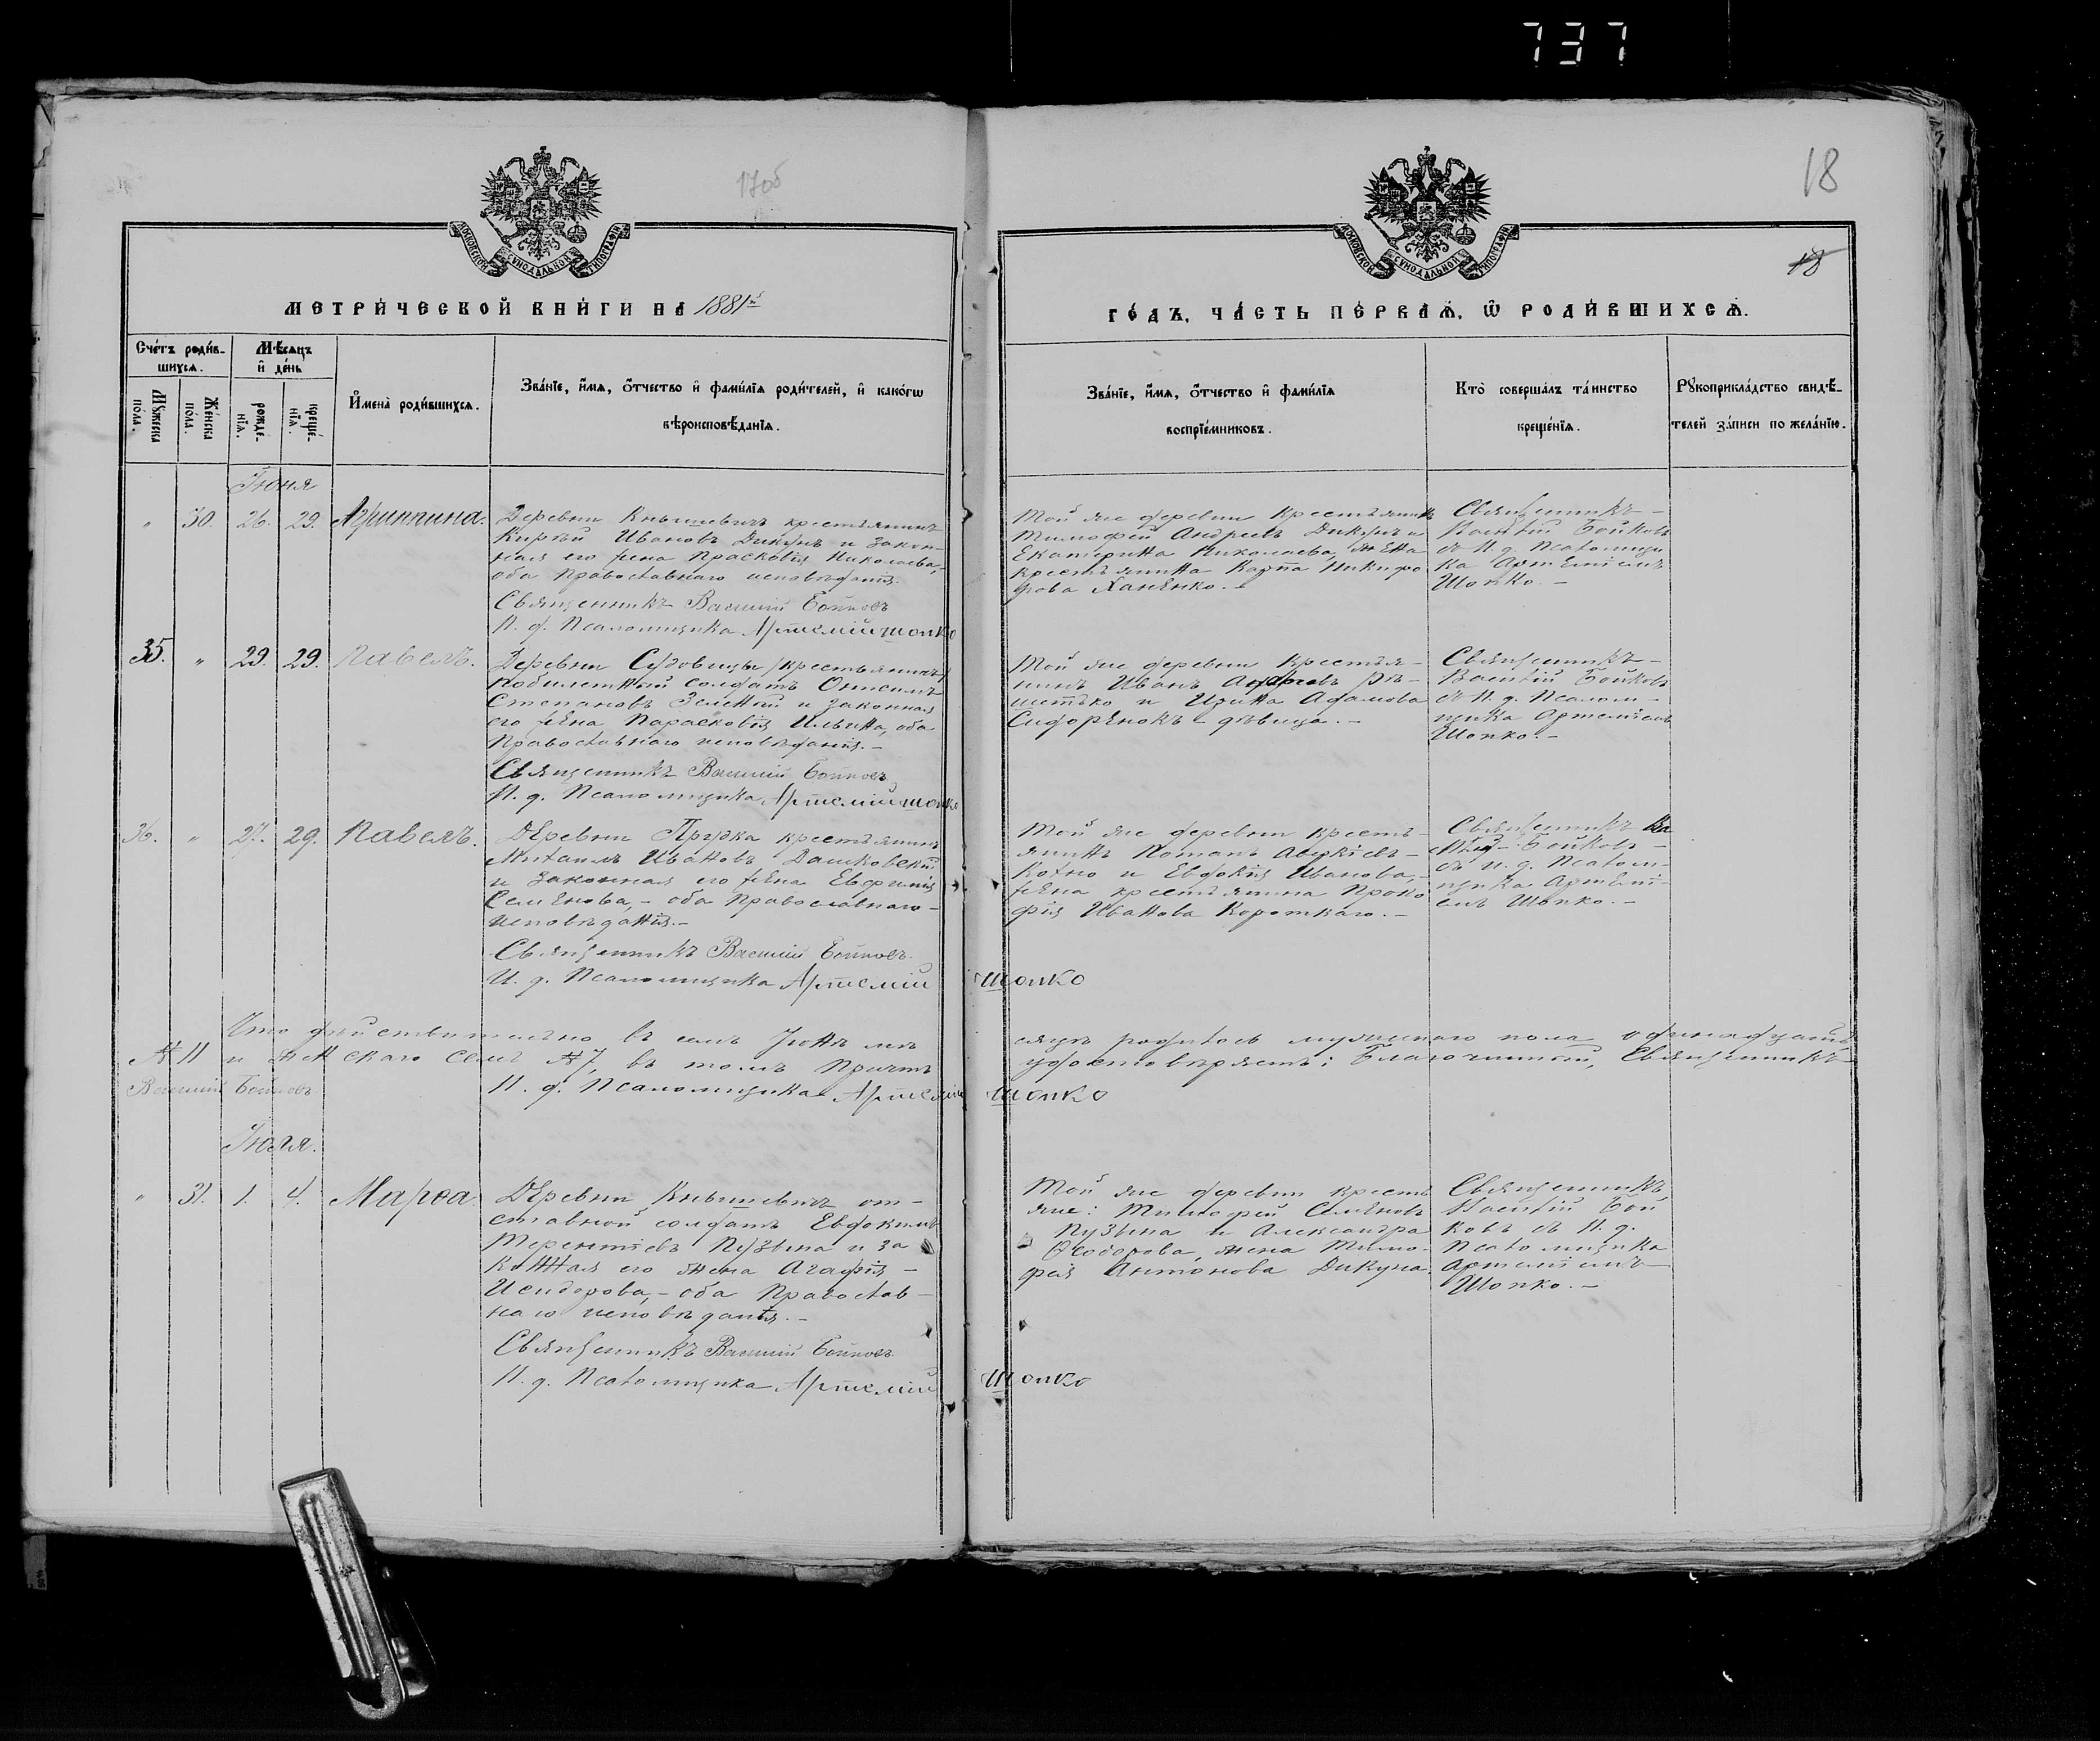 737
17об
18
18
МОСКОВСКОЙ СѴНОДАЛЬНОЙ ТИПОГРАФІИ
МОСКОВСКОЙ СѴНОДАЛЬНОЙ ТИПОГРАФІИ
МЕТРИ́ЧЕСКОЙ КНИ́ГИ НА 1881й
ГО́ДЪ, ЧА́СТЬ ПЕ́РВАѦ, Ѡ РОДИ́ВШИХСѦ.
Сче́тъ роди́в-
шихсѧ.
Мꙋжеска по́ла.
Же́нска по́ла.
Мѣ́сѧцъ
и де́нь
рожде́-
нїѧ.
креще́-
нїѧ.
И҆мена̀ роди́вшихсѧ.
Зва́нїе, и҆́мѧ, ѻ҆́тчество и҆ фами́лїѧ роди́телей, и҆ како́гѡ
вѣроисповѣ́данїѧ.
Зва́нїе, и҆́мѧ, ѻ҆́тчество и҆ фами́лїѧ
воспрїе́мниковъ.
Кто̀ соверша́лъ та́инство
креще́нїѧ.
Рꙋкоприкла́дство свидѣ́-
телей за́писи по жела́нїю.
Іюня
" 30. 26. 29. Агриппина.
Деревни Кнышевичъ крестьянинъ
Кирѣй Ивановъ Дикунъ и закон-
ная его жена Прасковія Николаева,
оба Православнаго исповѣданія.
Священникъ Василій Бойковъ
И. д. Псаломщика Артемій Шопко
Той же деревни крестьянинъ
Тимофей Андреевъ Дикунъ и
Екатерина Николаева, жена
крестьянина Карпа Никифо
рова Ханенко.-
Священникъ-
Василій Бойковъ
съ И. д. Псаломщи
ка Артеміемъ
Шопко.-
35. " 29. 29. Павелъ.
Деревни Судовицы /крестьянинъ/
солдатъ Онисимъ
Степановъ Зеленый и законная
его жена Парасковія Ильина, оба
Православнаго исповѣданія.-
Священникъ Василій Бойковъ
И. д. Псаломщика Артемій Шопко
Той же деревни крестья-
нинъ Иванъ Рѣ-
шетько и Ирина Адамова
Сидорѣнокъ - дѣвица.-
Священникъ-
Василій Бойковъ
съ И. д. Псалом-
щика Артеміемъ
Шопко.-
36. " 27. 29. Павелъ.
Деревни Прудка крестьянинъ
Михаилъ Ивановъ Дашковскій
и законная его жена Евфимія
Семенова,- оба Православнаго-
исповѣданія.-
Священникъ Василій Бойковъ
И. д. Псаломщика Артемій Шопко
Той же деревни кресть-
янинъ Потапъ Авкіевъ-
Кохно и Евдокія Иванова,-
жена крестьянина Проко
фія Иванова Короткаго.-
Священникъ Ва
силій Бойковъ-
съ и. д. Псалом-
щика Артемі-
емъ Шопко.-
Что дѣйствительно въ семъ Іюнѣ мѣ сяцѣ родилось мужескаго пола одинадцать
№ 11 и женскаго семь № 7, въ томъ Причтъ удостовѣряетъ: Благочинный, Священникъ
Василій Бойковъ И. д. Псаломщика Артемій Шопко
Іюля.
" 31. 1. 4. Марѳа.
Деревни Кнышевичъ от-
ставной солдатъ Евдокимъ
Терентіевъ Пузына и за
конная его жена Агафія-
Исидорова,- оба Православ-
наго исповѣданія.-
Священникъ Василій Бойковъ
И. д. Псаломщика Артемій Шопко
Той же деревни кресть
яне: Тимофей Семеновъ
Пузына и Александра
Ѳеодорова, жена Тимо-
фея Антонова Дикуна.
Священникъ
Василій Бой
ковъ съ И. д.
Псаломщика
Артеміемъ-
Шопко.-